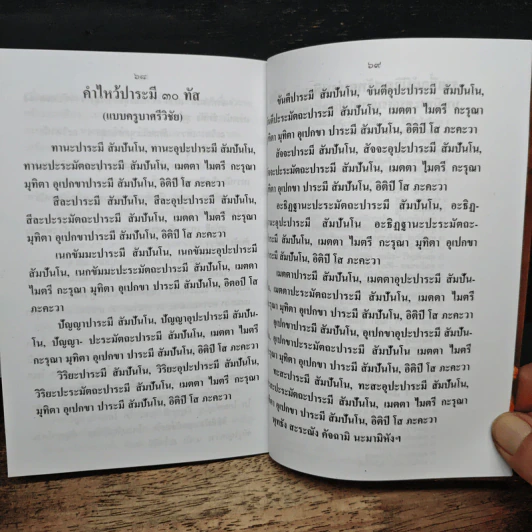 ๖๘
คำไหว้ปาระมี ๓๐ ทัส
(แบบครูบาศรีวิชัย)
ทานะปาระมี สัมปันโน, ทานะอุปะปาระมี สัมปันโน,
ทานะปะระมัตถะปาระมี สัมปันโน, เมตตา ไมตรี กะรุณา
มุทิตา อุเปกขาปาระมี สัมปันโน, อิติปิ โส ภะคะวา
สีละปาระมี สัมปันโน, สีละอุปะปาระมี สัมปันโน,
สีละปะระมัตถะปาระมี สัมปันโน, เมตตา ไมตรี กะรุณา
มุทิตา อุเปกขาปาระมี สัมปันโน, อิติปิ โส ภะคะวา
เนกขัมมะปาระมี สัมปันโน, เนกขัมมะอุปะปาระมี
สัมปันโน, เนกขัมมะปะระมัตถะปาระมี สัมปันโน, เมตตา
ไมตรี กะรุณา มุทิตา อุเปกขา ปาระมี สัมปันโน, อิตอปิ โส
ภะคะวา
ปัญญาปาระมี สัมปันโน, ปัญญาอุปะปาระมี สัมปัน-
โน, ปัญญา- ปะระมัตถะปาระมี สัมปันโน, เมตตา ไมตรี
กะรุณา มุทิตา อุเปกขา ปาระมี สัมปันโน, อิติปิ โส ภะคะวา
วิริยะปาระมี สัมปันโน, วิริยะอุปะปาระมี สัมปันโน,
วิริยะปะระมัตถะปาระมี สัมปันโน, เมตตา ไมตรี กะรุณา
มุทิตา อุเปกขา ปาระมี สัมปันโน, อิติปิ โส ภะคะวา
๖๙
ขันตีปาระมี สัมปันโน, ขันตีอุปะปาระมี สัมปันโน,
ขันตีปะระมัตถะปาระมี สัมปันโน, เมตตา ไมตรี กะรุณา
มุทิตา อุเปกขาปาระมี สัมปันโน, อิติปิ โส ภะคะวา
สัจจะปาระมี สัมปันโน, สัจจะอุปะปาระมี สัมปันโน,
สัจจะปะระมัตถะปาระมี สัมปันโน, เมตตา ไมตรี กะรุณา
มุทิตา อุเปกขา ปาระมี สัมปันโน, อิติปิ โส ภะคะวา
อะธิฏฐานะปาระมี สัมปันโน, อะธิฏ-
ฐานะอุปะปาระมี สัมปันโน อะธิฏฐานะปะระมัตถะ-
ปาระมี สัมปันโน, เมตตา ไมตรี กะรุณา มุทิตา อุเปกขา
ปาระมี สัมปันโน, อิติปิ โส ภะคะวา
เมตตาปาระมี สัมปันโน, เมตตาอุปะปาระมี สัมปัน-
โน, เมตตาปะระมัตถะปาระมี สัมปันโน, เมตตา ไมตรี
กะรุณา มุทิตา อุเปกขา ปาระมี สัมปันโน, อิติปิ โส ภะคะวา
อุเปกขาปาระมี สัมปันโน, อุเปกขาอุปะปาระมี สัมปัน-
โน, อุเปกขาปะระมัตถะปาระมี สัมปันโน, เมตตา ไมตรี
กะรุณา มุทิตา อุเปกขา ปาระมี สัมปันโน, อิติปิ โส ภะคะวา
ทะสะปาระมี สัมปันโน, ทะสะอุปะปาระมี สัมปันโน,
ทะสะปะระมัตถะปาระมี สัมปันโน, เมตตา ไมตรี กะรุณา
มุทิตา อุเปกขา ปาระมี สัมปันโน, อิติปิ โส ภะคะวา
พุทธัง สะระณัง คัจฉามิ นะมามิหังฯ